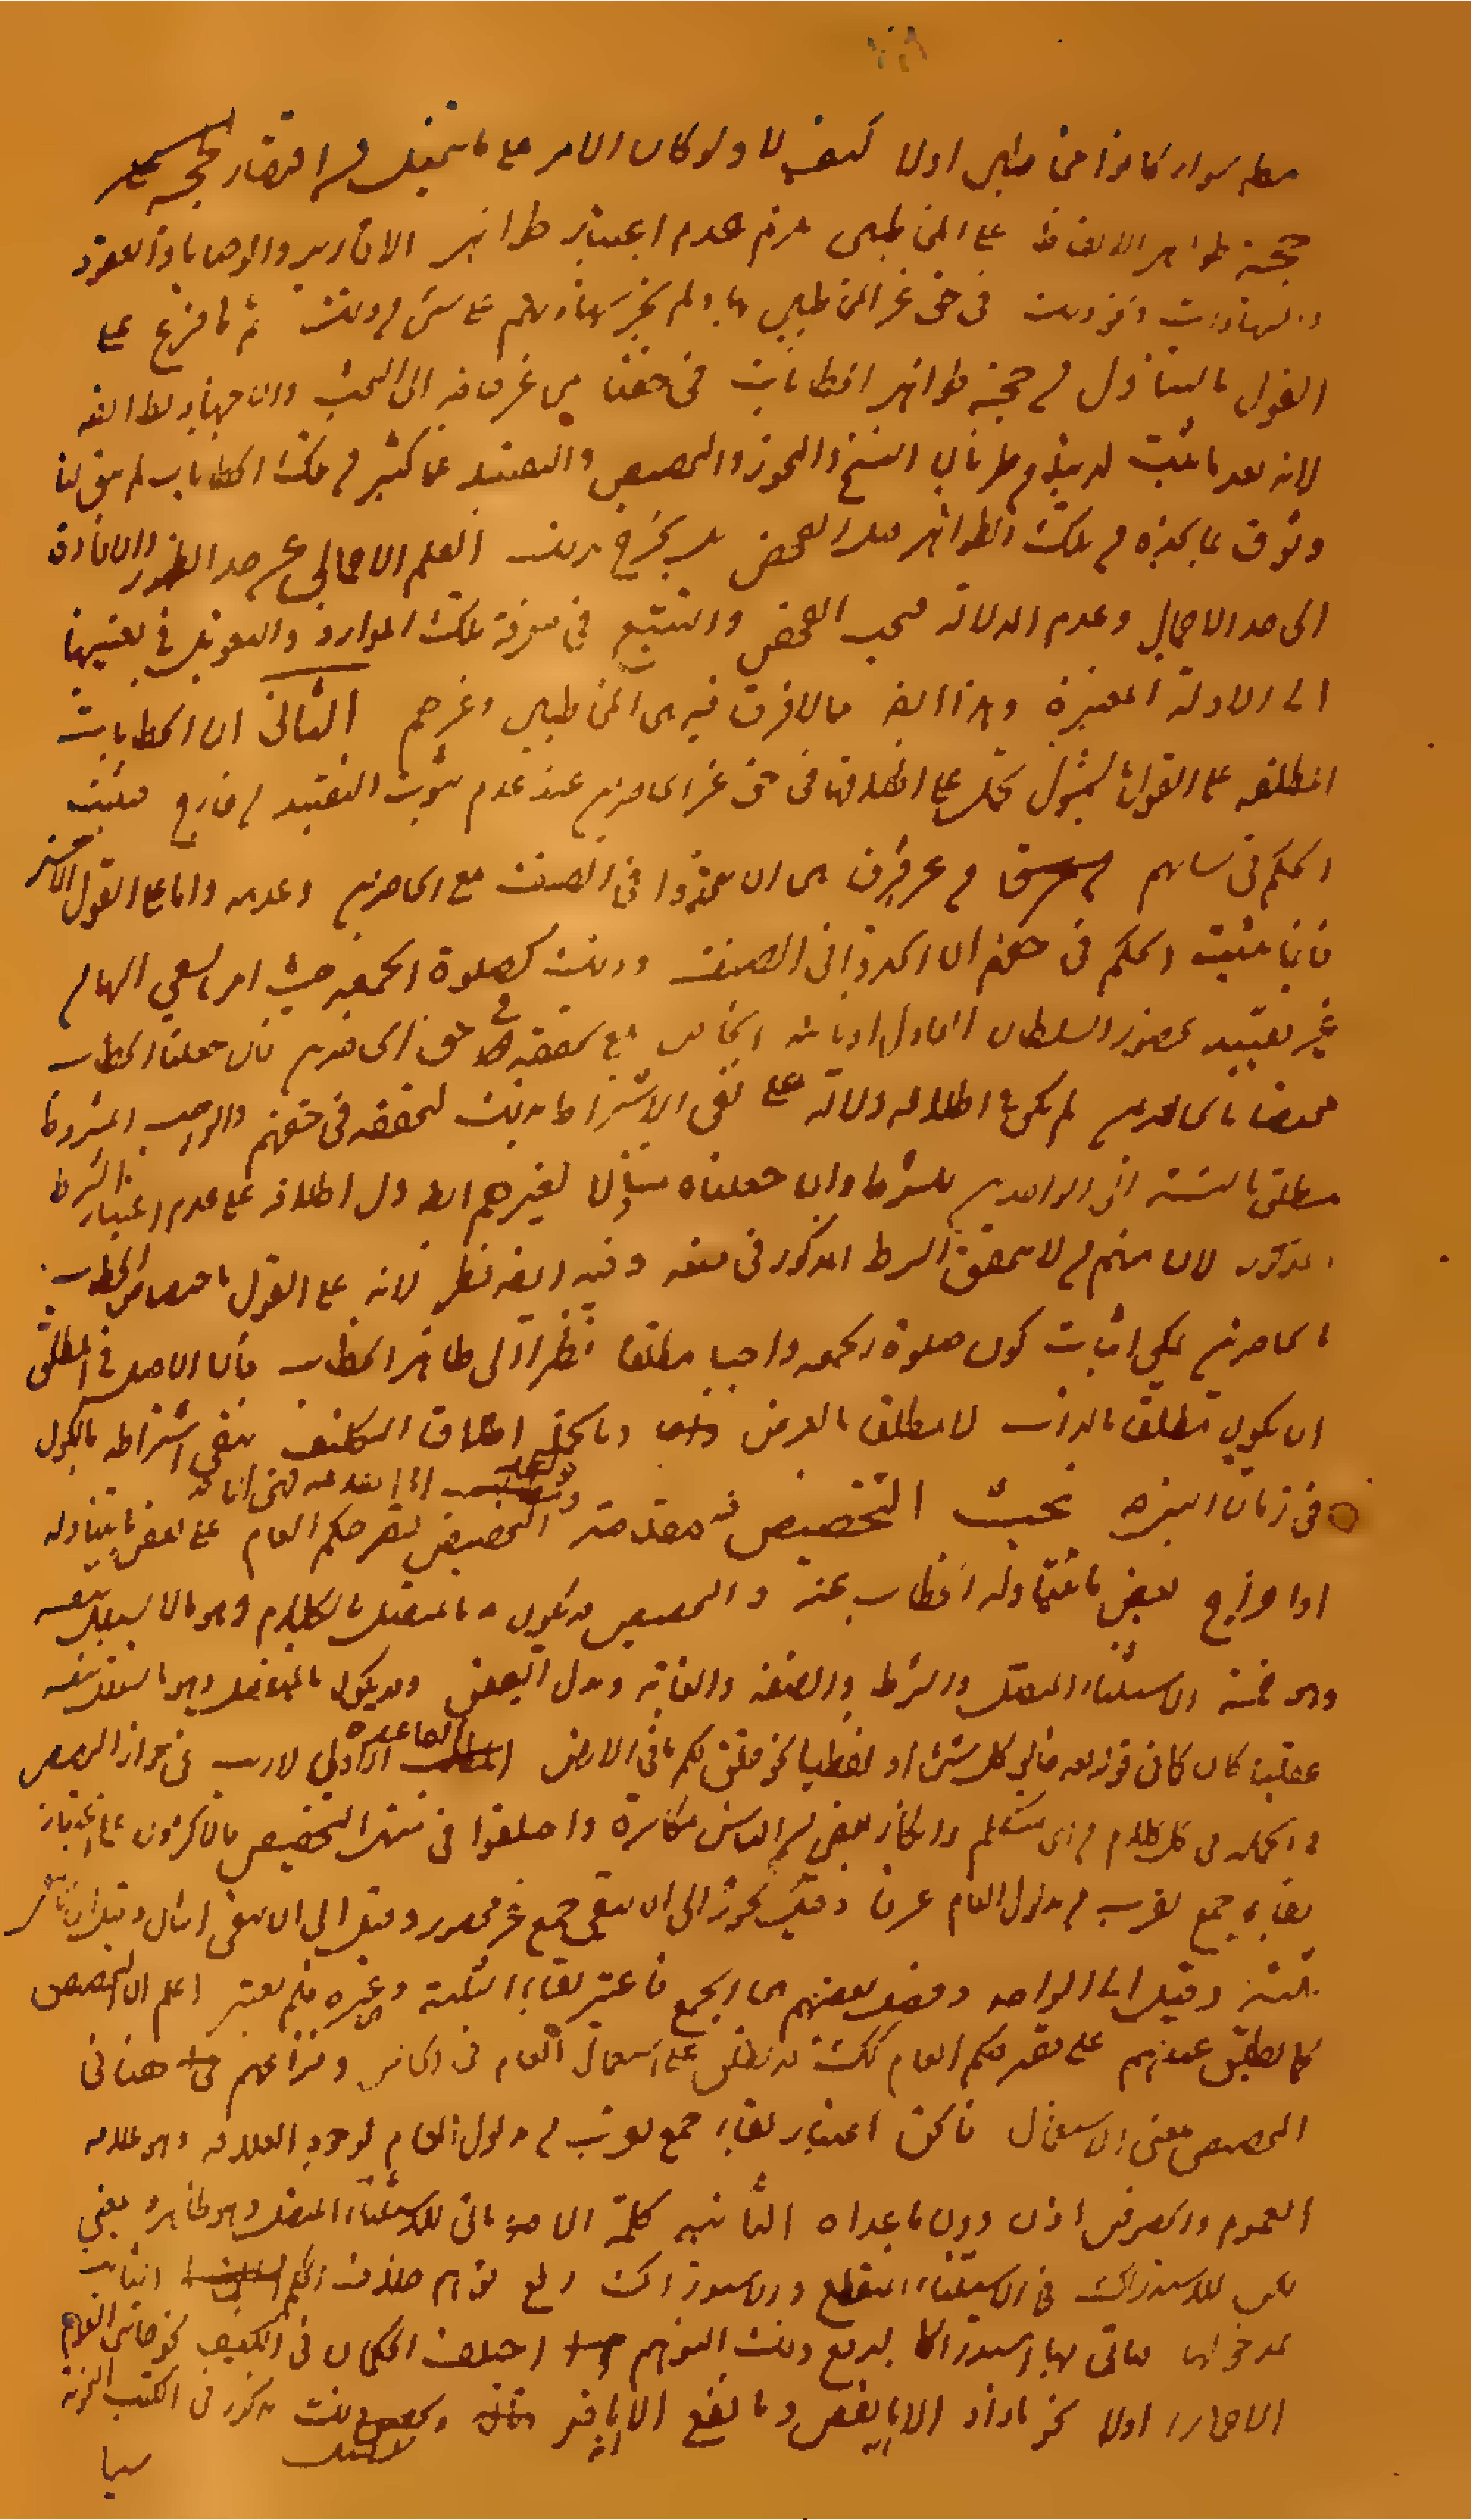 مطلقا سواء كانوا مخاطبين اولا كيف لا ولو كان الامر على ما تخيل من اختصار حجية
حجية ظواهر الالفاظ على المخاطبين لزم عدم اعتبار ظواهر الاقارير والوصايا والعقود
والشهادات ونحو ذلك في حق غير المخاطبين بها ولم يجز شهادتهم على شئ من ذلك ثم ما فرع على
القول بالتنازل من حجية ظواهر الخطابات في حقنا من غير حاجة الى البحث والاجتهاد
لانه بعد ما ثبت لدينا من طريان النسخ والتجوز والتخصيص والتقييد على كثير من تلك الخطابات لم يبق لنا
وثوق بما نجده من تلك الظواهر قبل الفحص بل يخرج بذلك العلم الاجمالي عن حد الظهور والافادة
الى حد الاجمال وعدم الدلالة فيجب الفحص والتتبع في معرفة تلك الموارد والتعويل في تعيينها
الى الادلة المعتبرة وهذا ايضا مما لا فرق فيه بين المخاطبين وغيرهم الثاني ان الخطابات
المطلقة على القول بالشمول تحمل على اطلاقها في حق غير الحاضرين عند عدم ثبوت التقييد من خارج فيثبت
الحكم في شانهم من غير فرق بين ان يتحدوا في الصنف مع الحاضرين وعدمه واما على القول الآخر
فانما يثبت الحكم في حقهم ان اتحدوا في الصنف وذلك كصلوة الجمعة حيث امر بالسعي اليها من
غير تقييد بحضور السلطان العادل او نائبه الخاص مع تحققه في حق الحاضرين فان جعلنا الخطاب
مختصا بالحاضرين لم يكن في اطلاقه دلالة على نفي الاشتراط بذلك لتحققه في حقهم والواجب المشروط
مطلق بالنسبة الى الواجدين للشرط وان جعلناه متناولا لغيرهم ايضا دل اطلاقه على عدم اعتبار الشرط
المذكور لان منهم من لا يتحقق الشرط المذكور في حقه وفيه ايضا نظر لانه على القول باختصاص الخطاب
بالحاضرين يمكن اثبات كون صلوة الجمعة واجبا مطلقا نظرا الى ظاهر الخطاب فان الاصل في المطلق
ان يكون مطلقا بالذات لا مطلقا بالعرض وبالجملة اطلاق التكليف ينفي اشتراطه بالكون
في زمان النبي ص بحث التخصيص فيه مقدمة التخصيص قصر حكم العام على بعض ما يتناوله
او اخراج بعض ما يتناوله الخطاب عنه والتخصيص قد يكون بالمتصل بالكلام وهو ما لا يستقل بنفسه
وهو خمسة الاستثناء المتصل والشرط والصفة والغاية وبدل البعض وقد يكون بالمنفصل وهو ما يستقل بنفسه
عقليا كان كما في قوله الله خالق كل شئ او لفظيا نحو خلق لكم ما في الارض القاعدة الاولى لا ريب في جواز التخصيص
في الجملة في كل كلام من اي متكلم وانكار بعض من الناس مكابرة واختلفوا في منتهى التخصيص فالاكثرون على اعتبار
بقاء جمع يقرب من مدلول العام عرفا وقيل يجوز الى ان يبقى جمع غير محصور وقيل الى ان يبقى اثنان
ثلثة وقيل الى الواحد وفصل بعضهم بين الجمع فاعتبر بقاء الثلثة وغيره فلم يعتبر اعلم ان التخصيص
كما يطلق عندهم على قصر حكم العام كك قد يطلق على استعمال العام في الخاص ونزاعهم هنا في
التخصيص بمعنى الاستعمال فالحق اعتبار بقاء جمع يقرب من مدلول العام لوجود العلاقة وهو علاقة
العموم والخصوص اذن دون ما عداه الثانية كلمة الا موضوعة للاستثناء المتصل وهو ظاهر يعني
للاستدراك في الاستثناء المنقطع والاستدراك رفع توهم خلاف الحكم الثابت
بمدخولها يؤتى بها استدراكا لدفع ذلك التوهم اختلف الحكمان في الكيف نحو جائني القوم
الا حمارا اولا نحو ما زاد الا ما نقص وما نفع الا ما ضر وتحقيق ذلك مذكور في الكتب النحوية
سيا